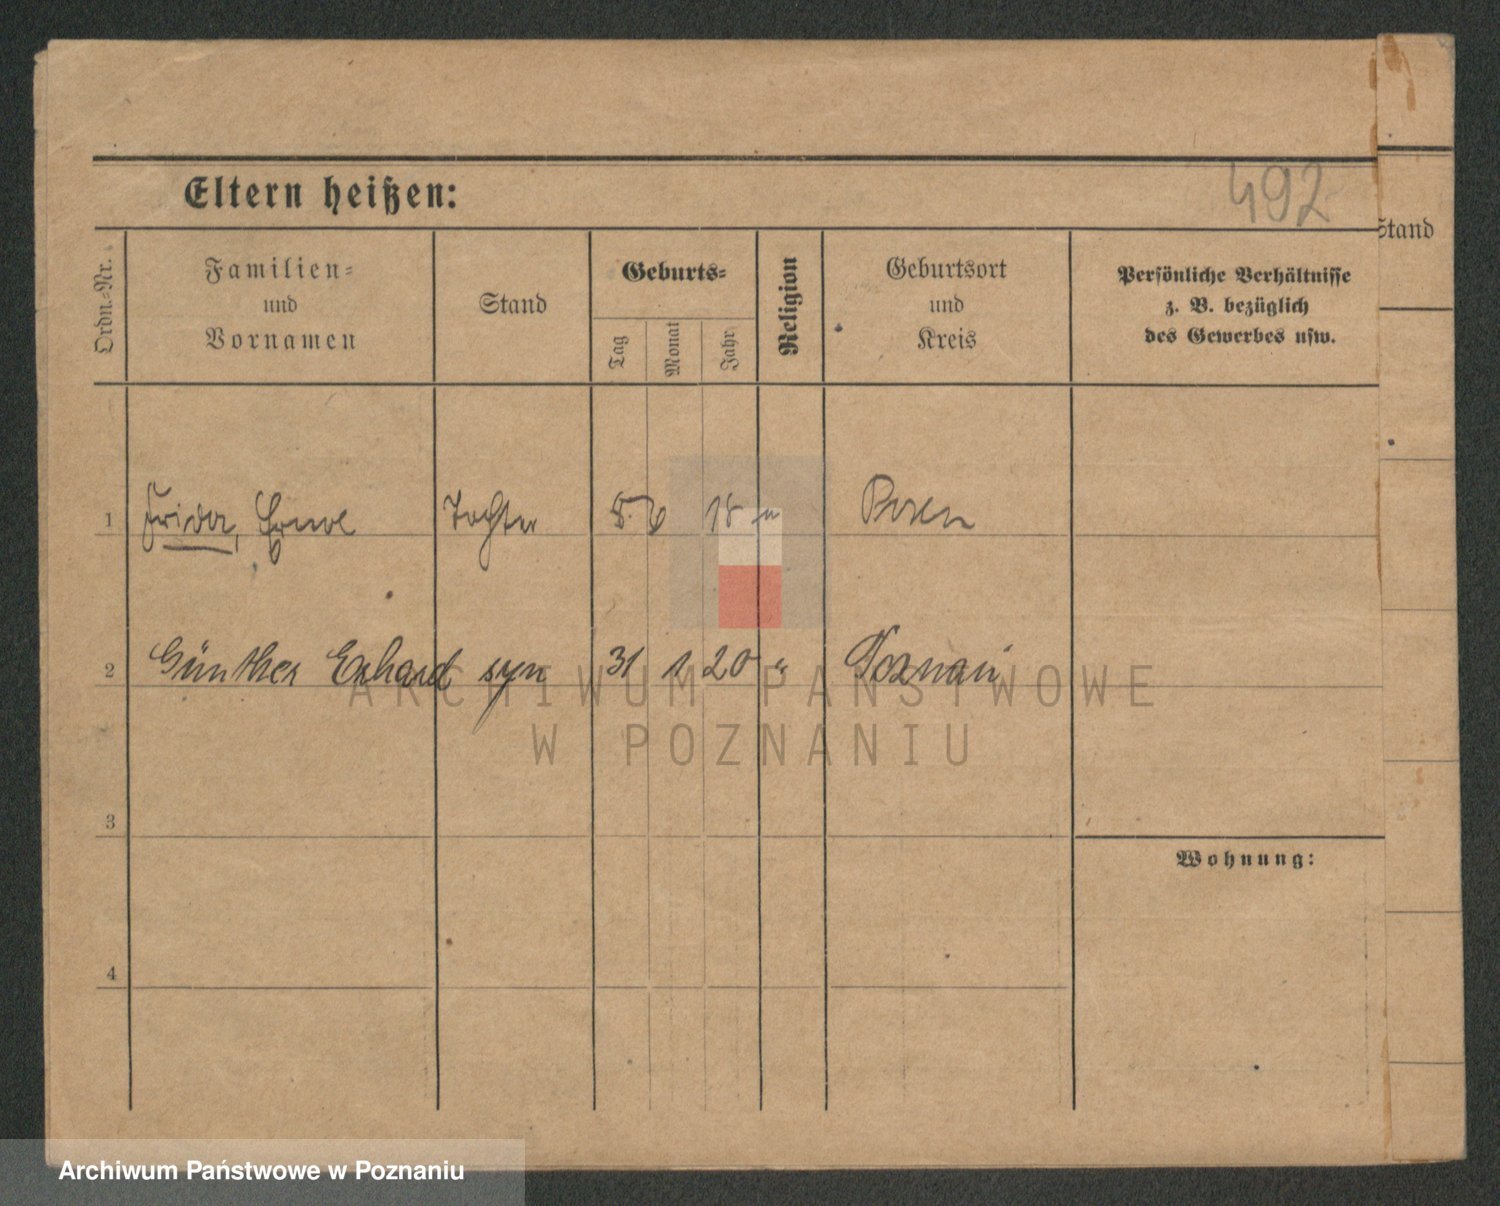 492
Eltern heißen:
Stand
Ordn.-Nr.
Familien-
und
Vornamen
Stand
Geburts-
Tag
Monat
Jahr
Religion
Geburtsort
und
Kreis
Persönliche Verhältnisse
z. B. bezüglich
des Gewerbes usw.
1 Frida, Tochter 5. 6 18 " Posen
2 Günther Erhard syn 31 1 20 " Poznań
ARCHIWUM PAŃSTWOWE
W POZNANIU
3
Wohnung:
4
Archiwum Państwowe w Poznaniu